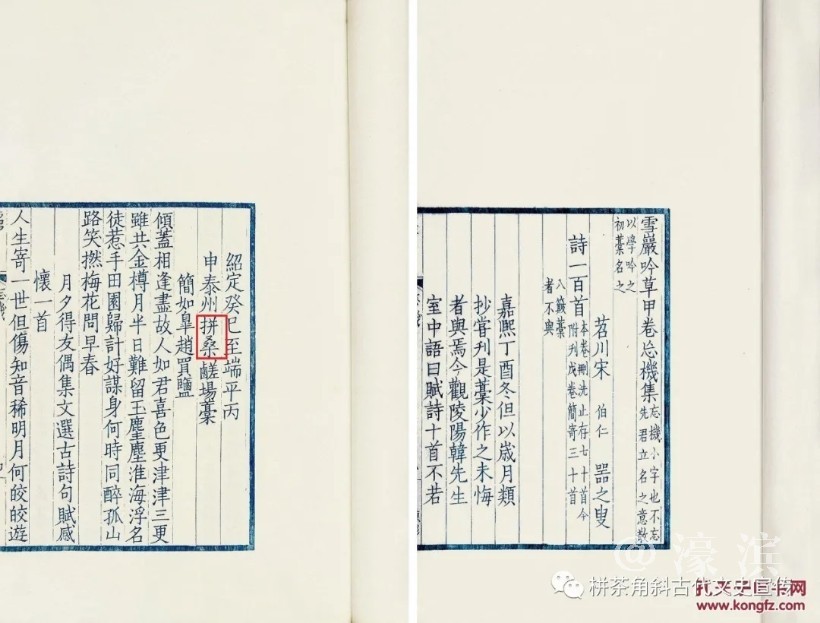 雪巖吟草甲卷忘機集忘機小字也不忘先君立名之意數
以學吟之
初藁名之
苕川宋 伯仁 器之叟
詩一百首本卷刪洗止存七十首今附刋戊卷簡寄三十首
八籤藁
者不與
嘉熙丁酉冬但以歲月類
抄嘗刋是藁少作之未悔
者與焉今觀陵陽韓先生
室中語曰賦詩十首不若
紹定癸巳至端平丙
申泰州拼桑鹺場藁
簡如臯趙買鹽
傾蓋相逢盡故人如君喜色更津津三更
雖共金樽月半日難留玉麈塵淮海浮名
徒惹手田園歸計好謀身何時同醉孤山
路笑撚梅花問早春
月夕得友偶集文選古詩句賦感
懷一首
人生寄一世但傷知音稀明月何皎皎遊
@濠滨
栟茶角斜古代文史宣传
www.kongfz.com